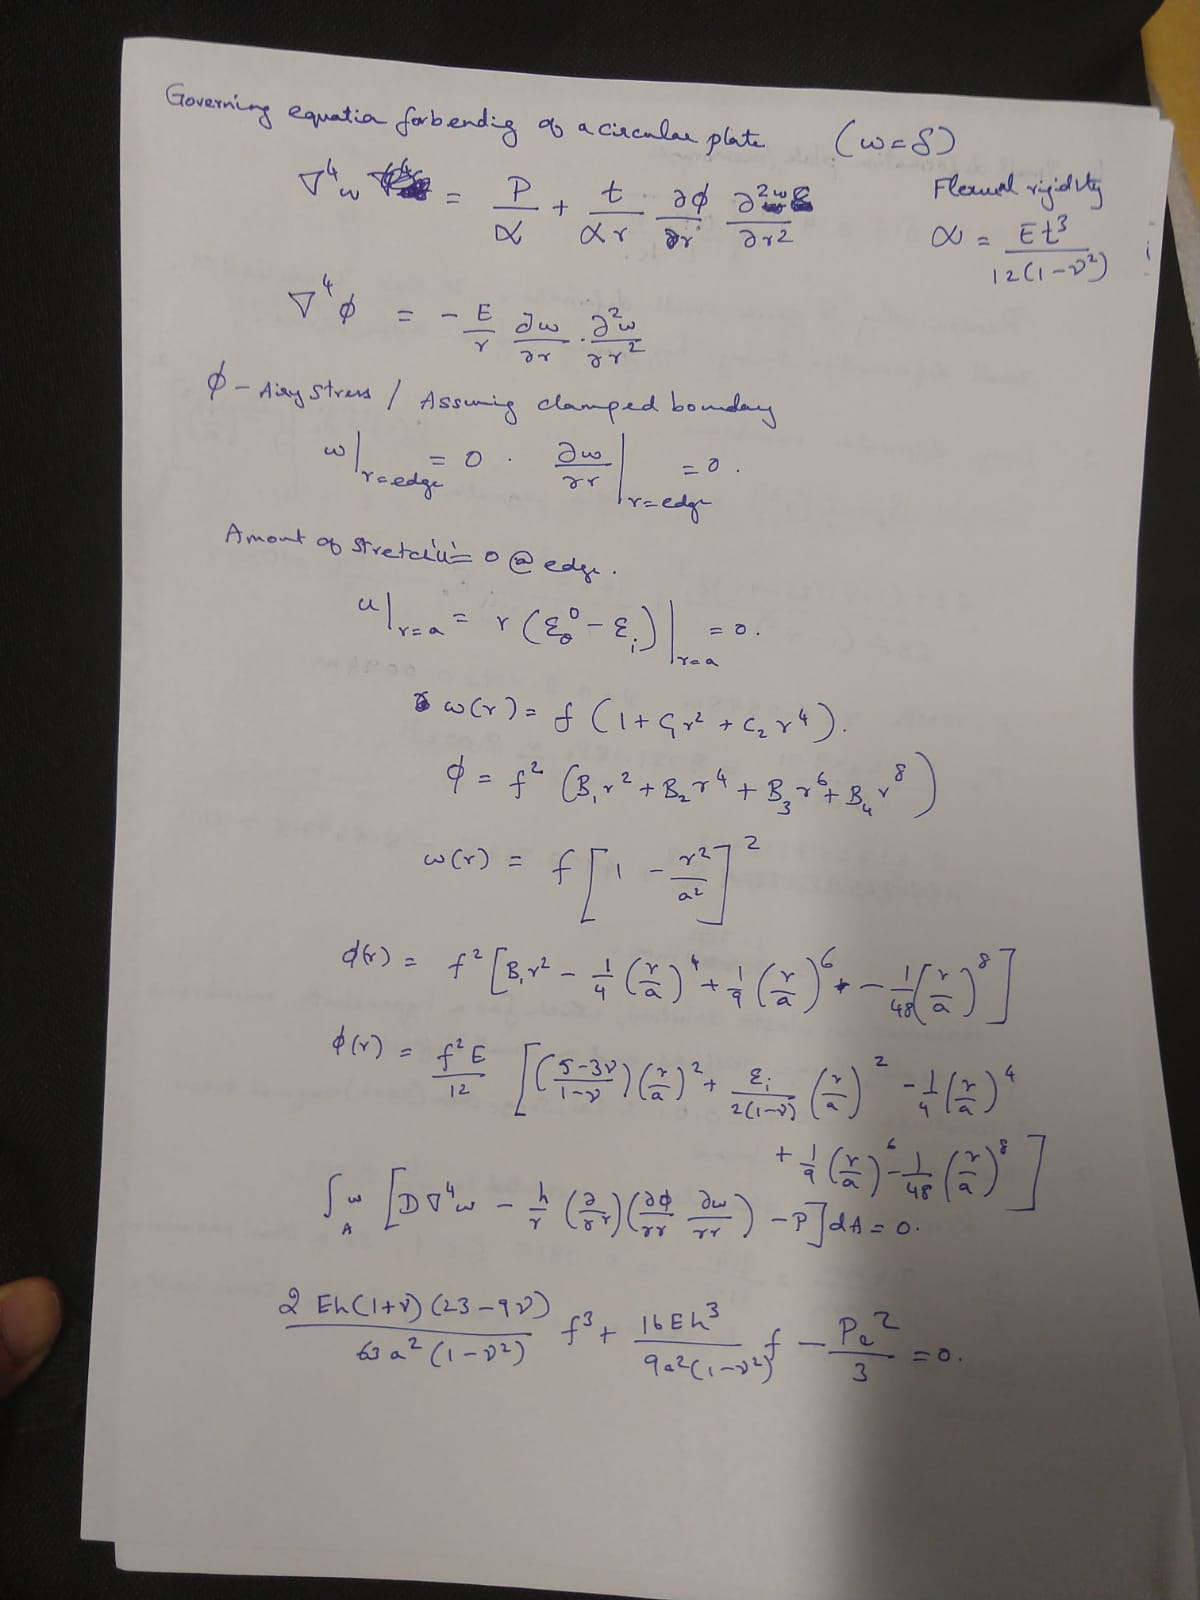 Governing equatia for bending of a circular plate (w=δ)
∇⁴w = P/α + t/(αr) ∂φ/∂r ∂²w/∂r²
Flexural rigidity
α = Et³/(12(1-ν²))
∇⁴φ = - E/r ∂w/∂r . ∂²w/∂r²
φ - Airy Stress / Assuming clamped boundary
w|r=edge = 0 . ∂w/∂r|r=edge = 0 .
Amount of stretchi = 0 @ edge .
u|r=a = r (ε₀⁰ - εᵢ)|r=a = 0 .
w(r) = f (1 + C₁r² + C₂r⁴) .
φ = f² (B₁r² + B₂r⁴ + B₃r⁶ + B₄r⁸)
w(r) = f [1 - r²/a²]²
φ(r) = f² [B₁r² - 1/4 (r/a)⁴ + 1/9 (r/a)⁶ - 1/48 (r/a)⁸]
φ(r) = f²E/12 [((5-3ν)/(1-ν)) (r/a)² + εᵢ/(2(1-ν)) (r/a)² - 1/4 (r/a)⁴
+ 1/9 (r/a)⁶ - 1/48 (r/a)⁸]
∫A w [D∇⁴w - h/r (∂/∂r) (∂φ/∂r ∂w/∂r) - P] dA = 0 .
2Eh(1+ν)(23-9ν)/(63a²(1-ν²)) f³ + 16Eh³/(9a²(1-ν²)) f - Pa²/3 = 0 .